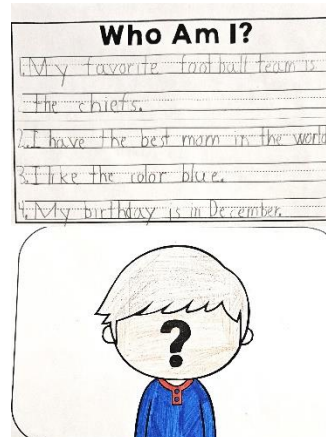 Who Am I?
1. My favorite football team is
the chiefs.
2. I have the best mom in the world
3. I like the color blue.
4. My birthday is in December.
?